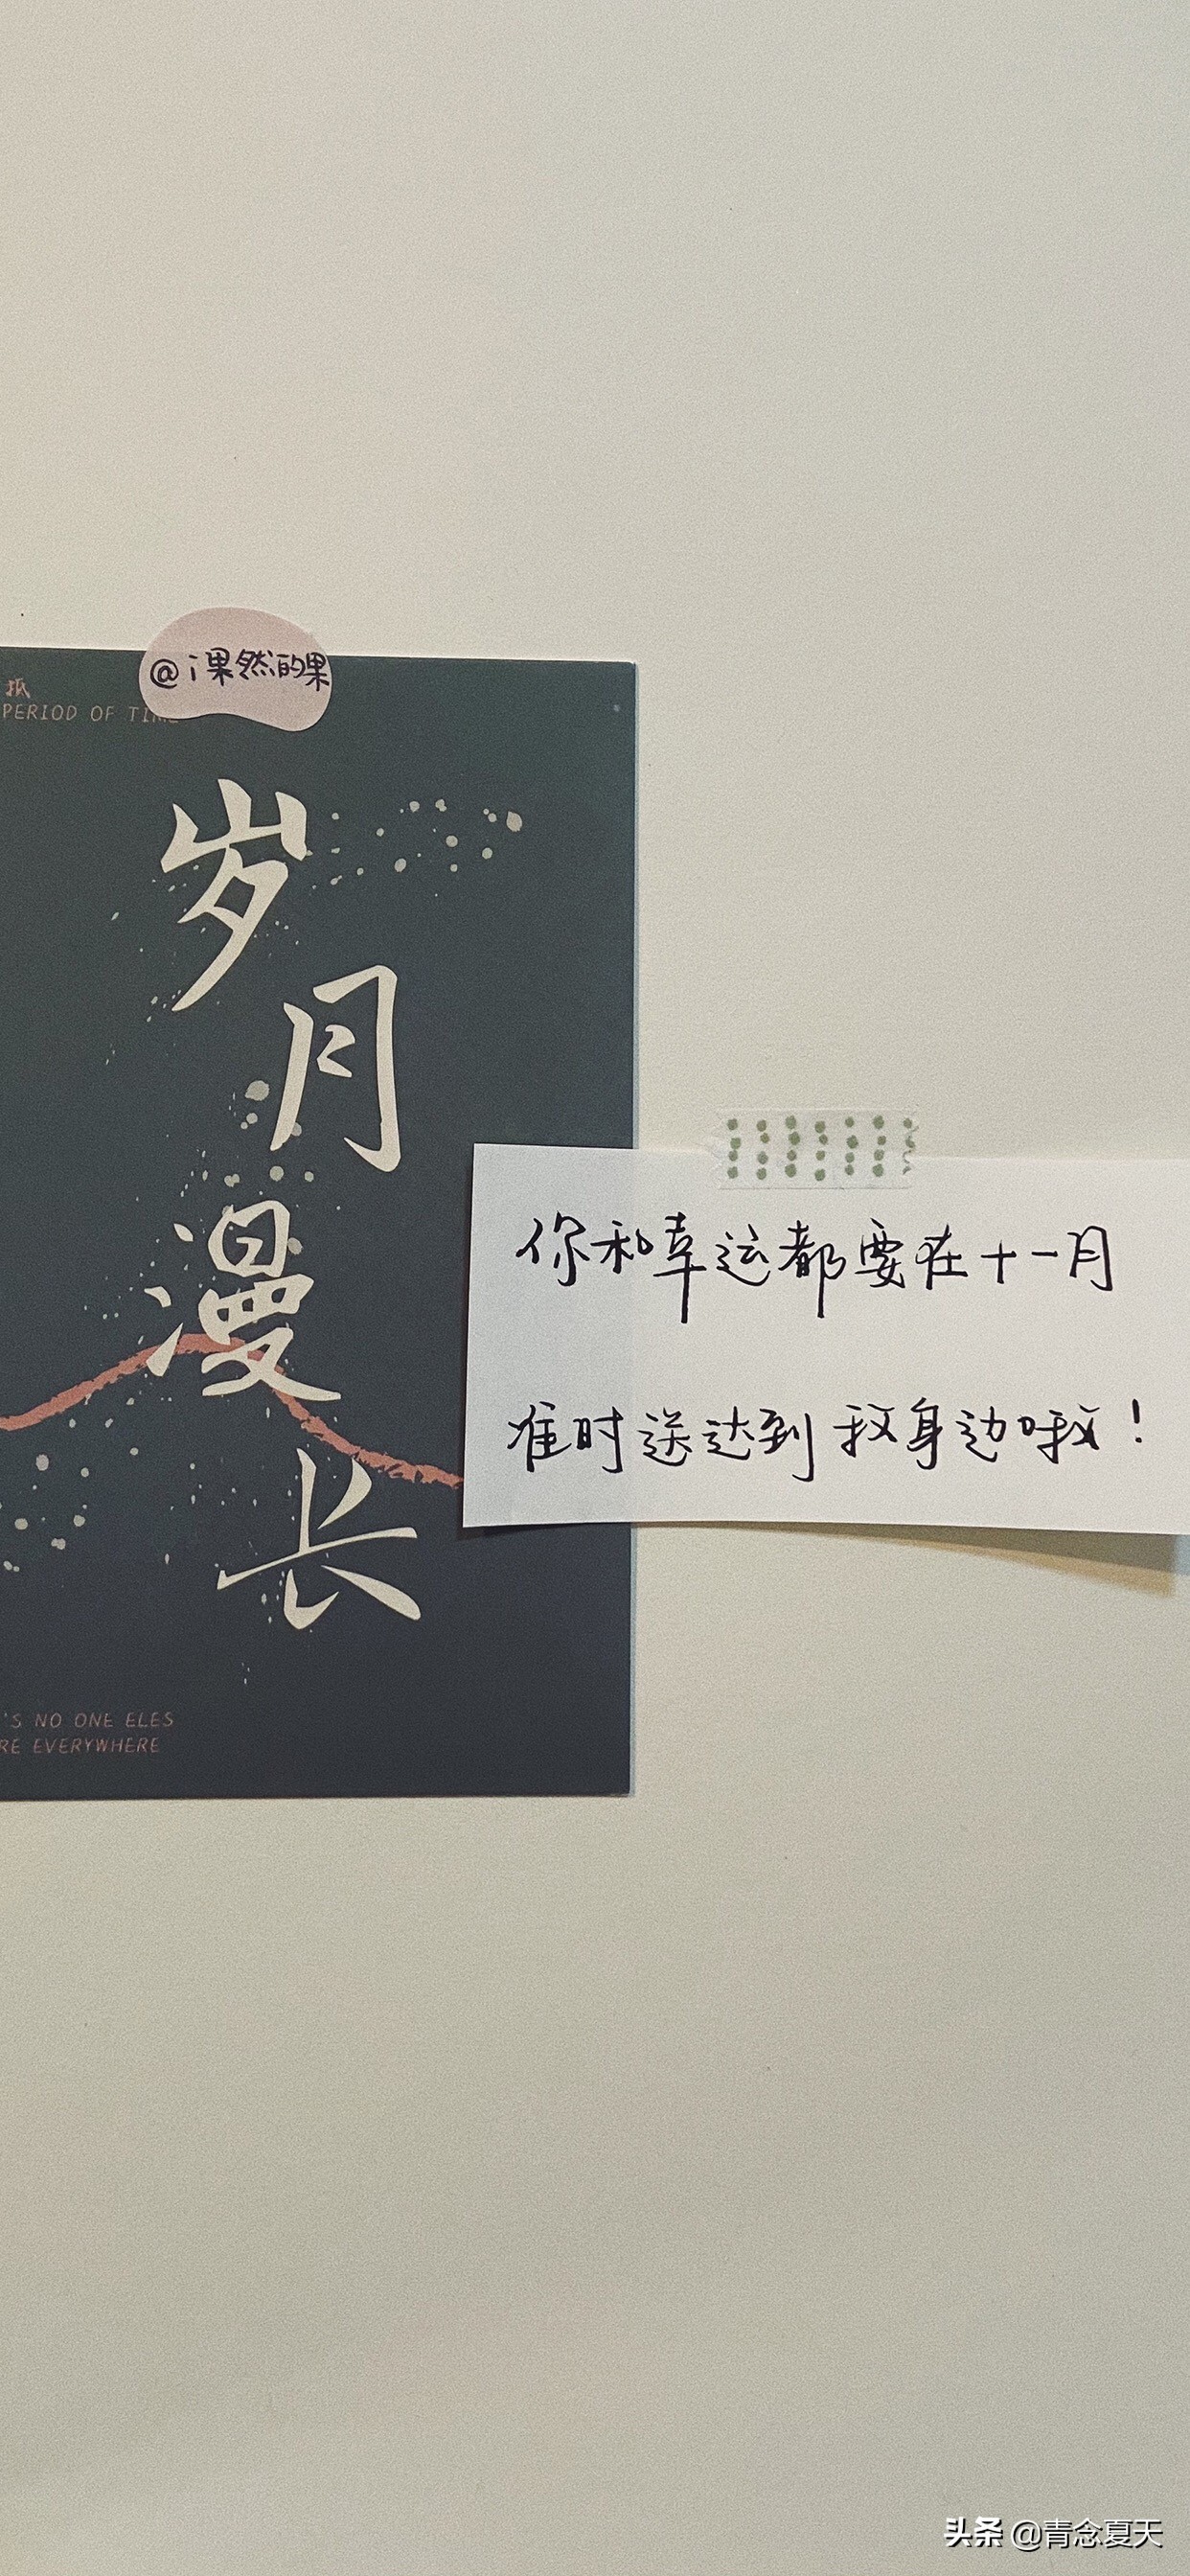 @i果然的果
PERIOD OF TIME
岁月漫长
你和幸运都要在十一月
准时送达到我身边哦！
'S NO ONE ELES
RE EVERYWHERE
头条 @青念夏天